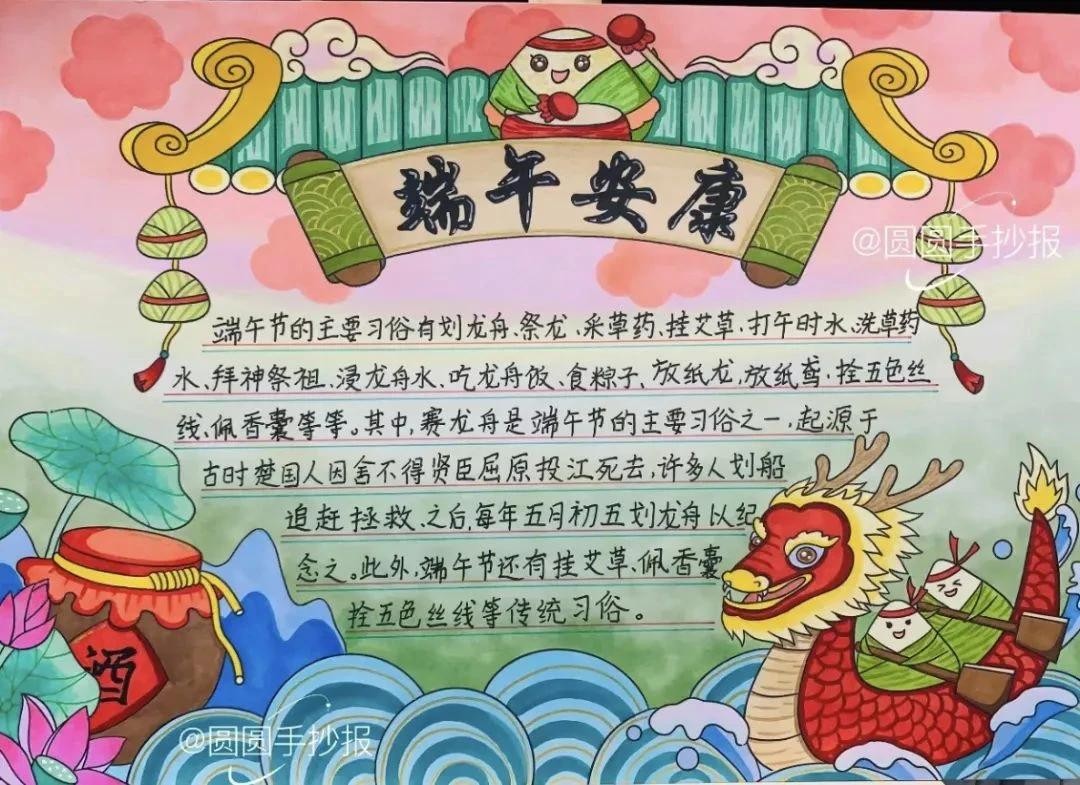 端午安康
@圆圆手抄报
端午节的主要习俗有划龙舟、祭龙、采草药、挂艾草、打午时水、洗草药
水、拜神祭祖、浸龙舟水、吃龙舟饭、食粽子、放纸龙,放纸鸢、拴五色丝
线、佩香囊等等。其中,赛龙舟是端午节的主要习俗之一,起源于
古时楚国人因舍不得贤臣屈原投江死去,许多人划船
追赶拯救、之后,每年五月初五划龙舟以纪
念之。此外,端午节还有挂艾草、佩香囊
拴五色丝线等传统习俗。
酒
@圆圆手抄报